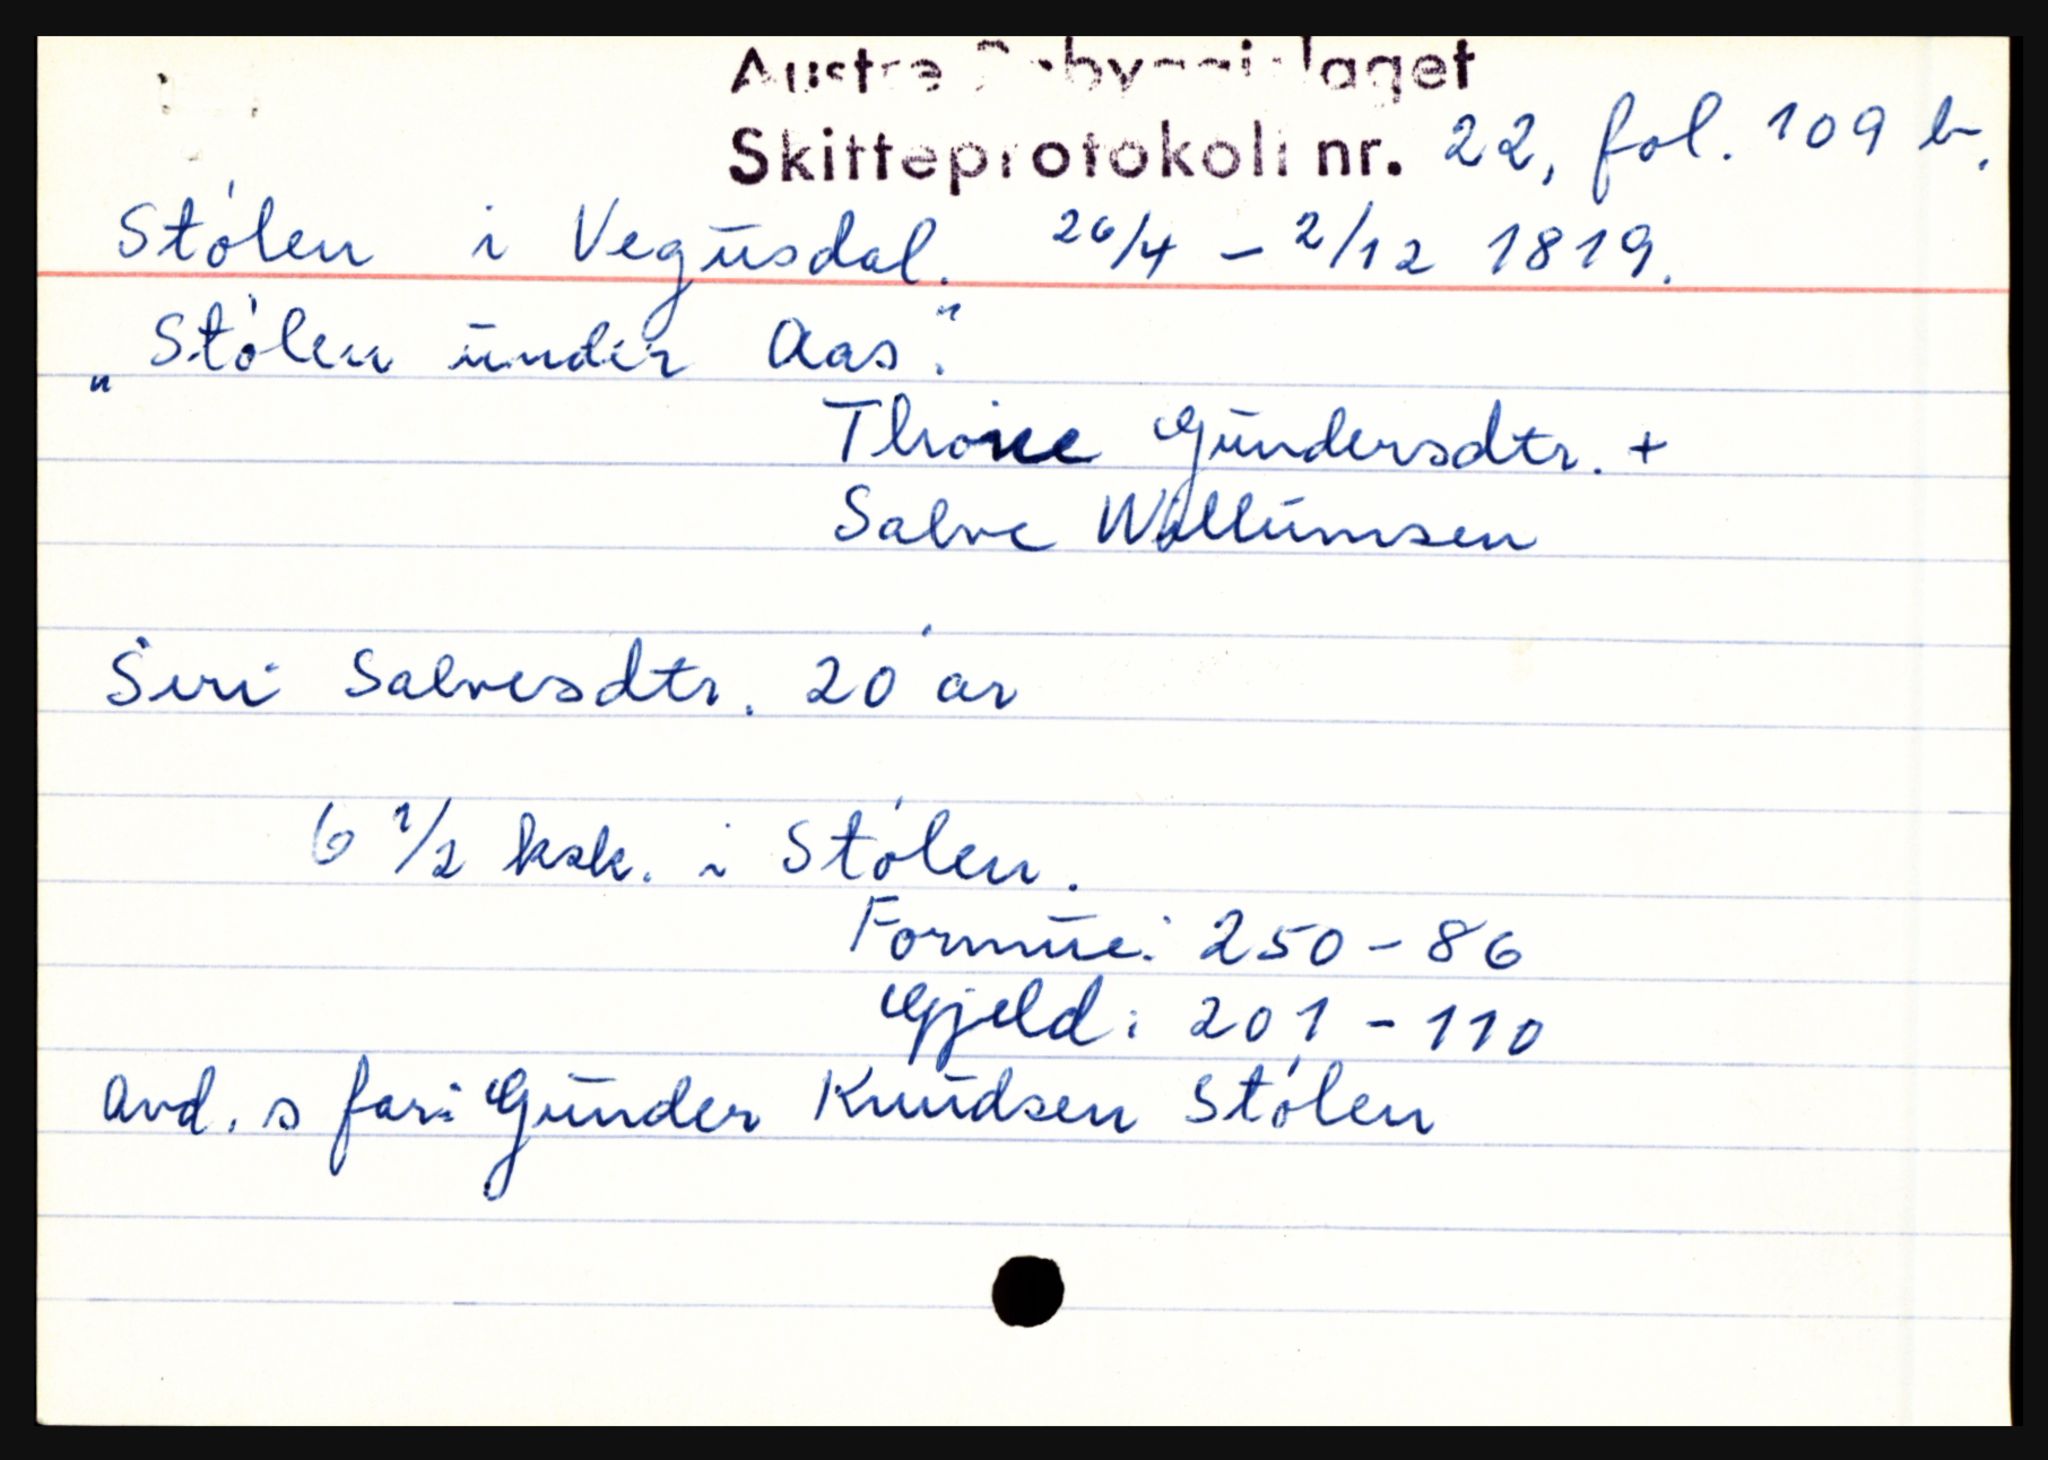 Austre laget
Skifteprotokoll nr. 22, fol. 109 b.
Stølen i Vegusdal. 26/4 - 2/12 1819.
„Stølen under Aas".
Throne Gundersdtr. +
Salve Wollumsen
Siri Salvesdtr. 20 år
6 1/2 ksk. i Stølen.
Formue: 250 - 86
Gjeld: 201 - 110
Avd. s far: Gunder Knudsen Stølen